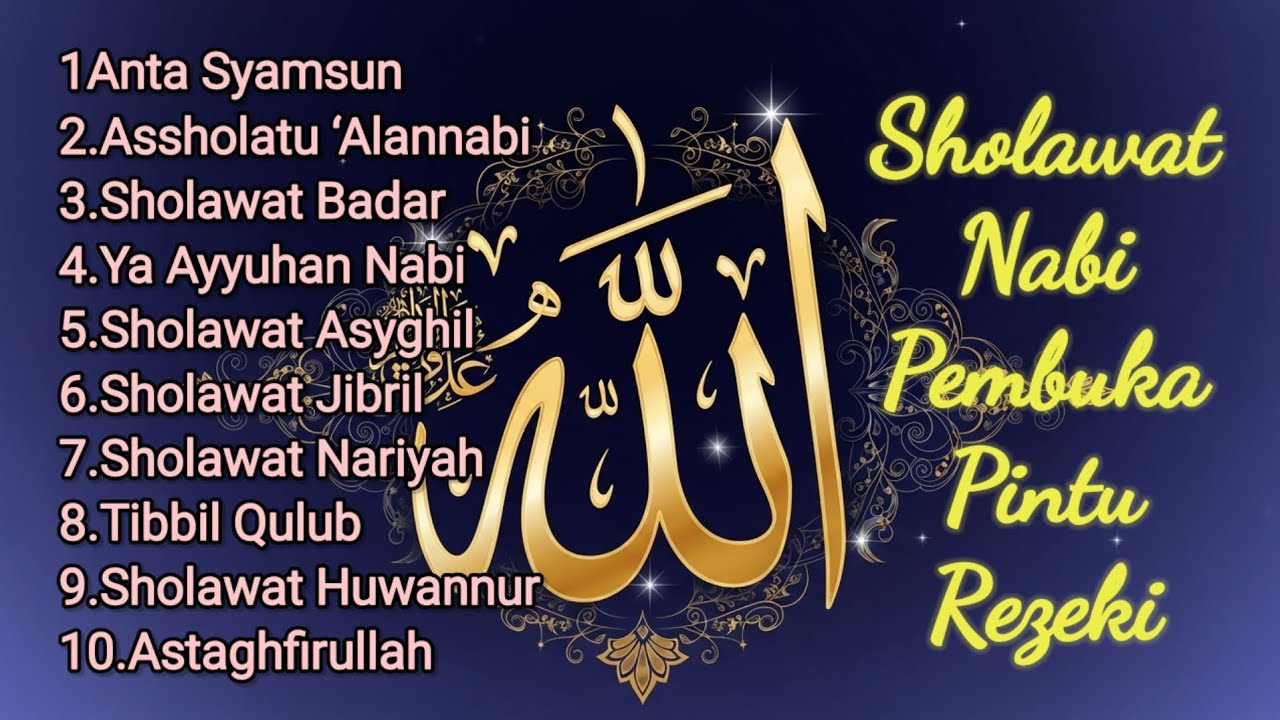 1Anta Syamsun
2.Assholatu ‘Alannabi
3.Sholawat Badar
4.Ya Ayyuhan Nabi
5.Sholawat Asyghil
6.Sholawat Jibril
7.Sholawat Nariyah
8.Tibbil Qulub
9.Sholawat Huwannur
10.Astaghfirullah
الله
Sholawat
Nabi
Pembuka
Pintu
Rezeki